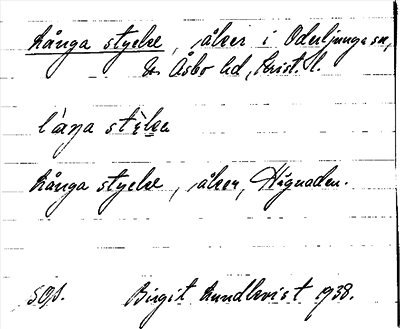 Långa stycke, åker i Oderljunga sn,
N. Åsbo hd, Krist. l.
Långa stycke, åker, Hägnaden.
SOA. Birgit Lundkvist 1938.